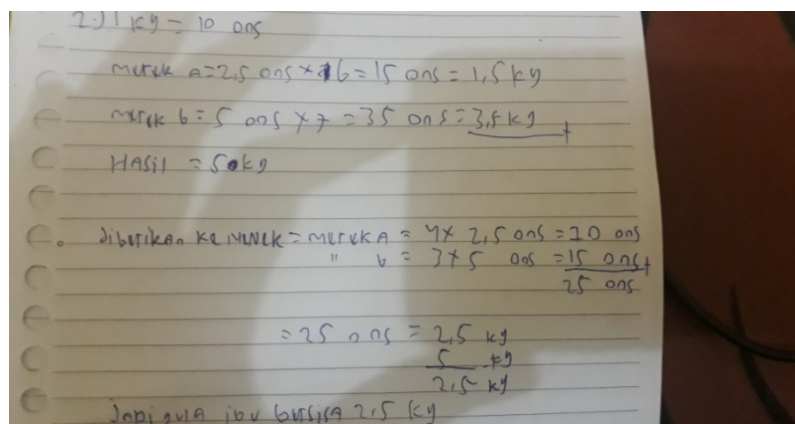 2.) 1 kg = 10 ons
merek A = 2,5 ons × 6 = 15 ons = 1,5 kg
merek b = 5 ons × 7 = 35 ons = 3,5 kg +
HASil = 5 kg
diberikan ke nenek = merek A = 4 × 2,5 ons = 10 ons
" b = 3 × 5 ons = 15 ons +
25 ons
= 25 ons = 2,5 kg
5 kg
2,5 kg
Jadi gula ibu bersisa 2,5 kg